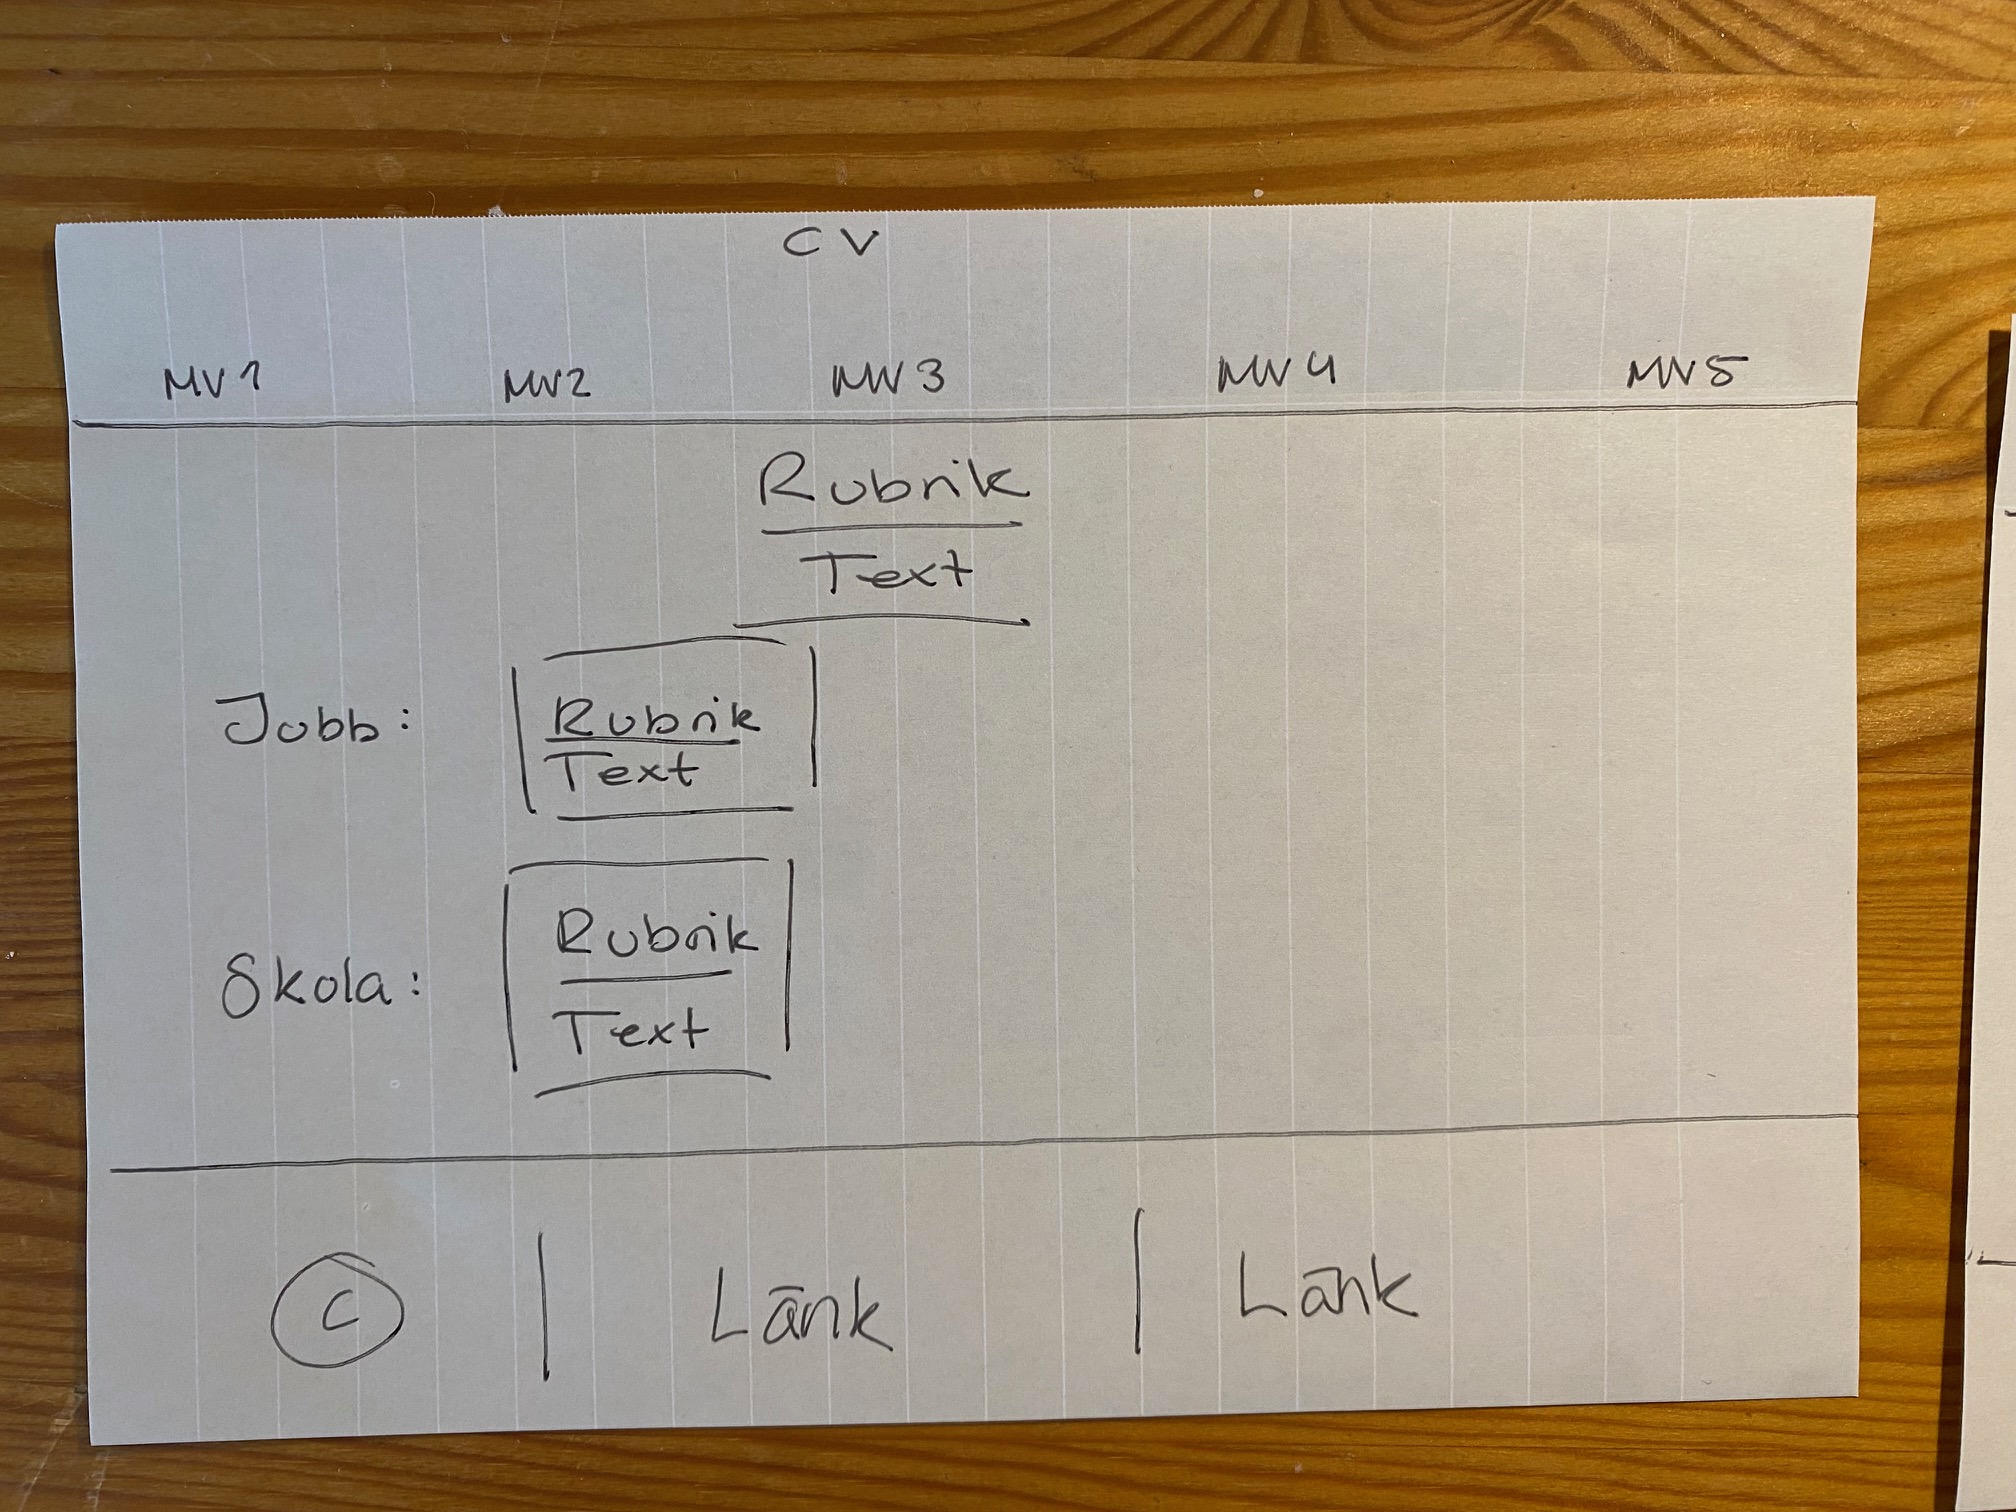 CV
MV1 MV2 MV3 MV4 MV5
Rubrik
Text
Jobb:
Rubrik
Text
Skola:
Rubrik
Text
C | Länk | Länk